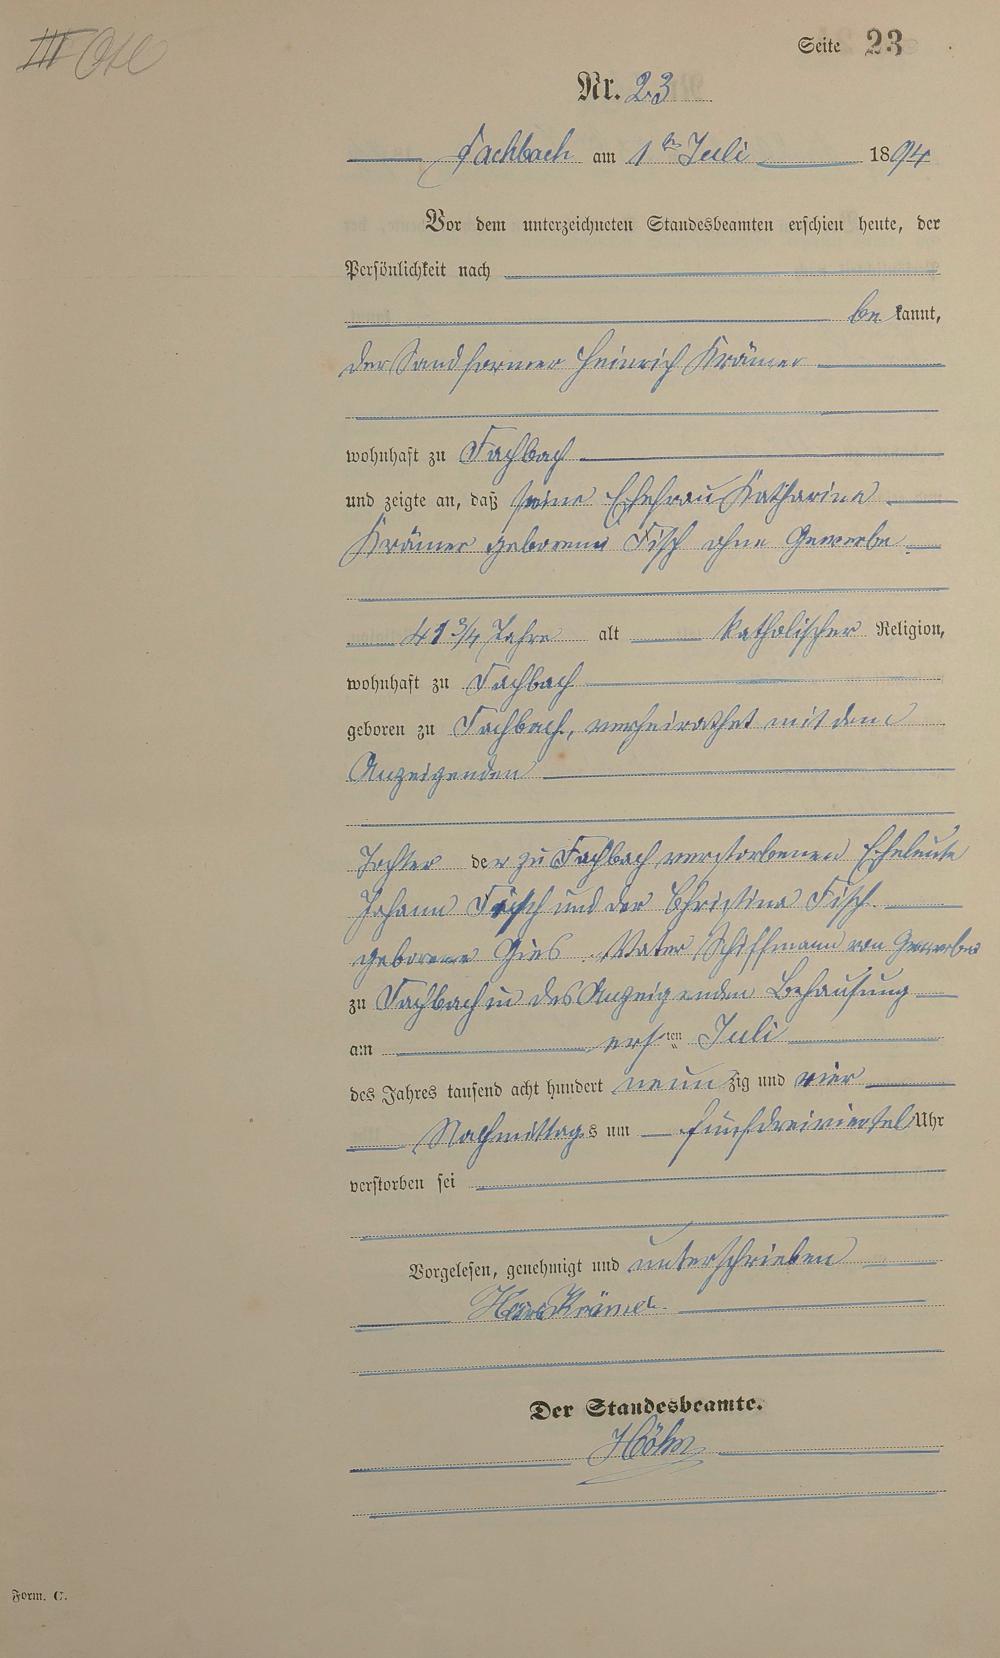 III
Seite 23
Nr. 23
Fachbach am 1ten Juli 1894
Vor dem unterzeichneten Standesbeamten erschien heute, der
Persönlichkeit nach
be kannt,
der Sandformer Heinrich Krämer
wohnhaft zu Fachbach
und zeigte an, daß seine Ehefrau Katharina
Krämer geborene Fisch ohne Gewerbe
41 3/4 Jahre alt katholischer Religion,
wohnhaft zu Fachbach
geboren zu Fachbach, verheirathet mit dem
Anzeigenden
Tochter der zu Fachbach verstorbenen Eheleute
Johann Fisch und der Christina Fisch
geborene Gies. Vater Schiffmann von Gewerbe
zu Fachbach in des Anzeigenden Behausung
am ersten Juli
des Jahres tausend acht hundert neun zig und vier
Nachmittags um fünfdreiviertel Uhr
verstorben sei
Vorgelesen, genehmigt und unterschrieben
Krämer
Der Standesbeamte.
Höhn
Form. C.